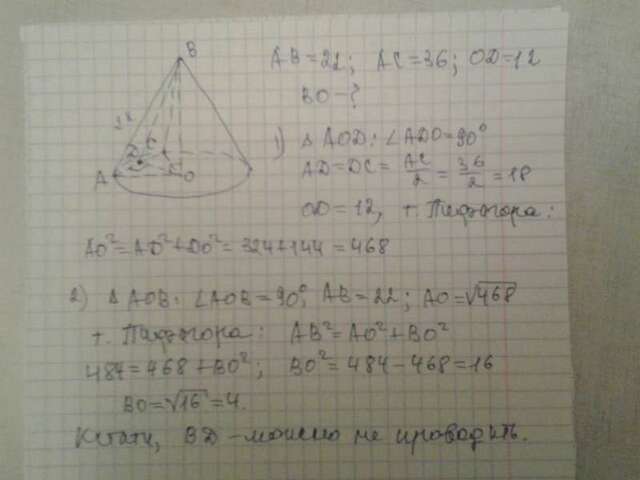 B
AB=22; AC=36; OD=12
BO-?
22
D C
A O
1) △AOD: ∠ADO=90°
AD=DC= AC/2 = 36/2 =18
OD=12, т. Пифагора:
AO²=AD²+DO²=324+144=468
2) △AOB: ∠AOB=90°, AB=22; AO=√468
т. Пифагора: AB²=AO²+BO²
484=468+BO²; BO²=484-468=16
BO=√16=4.
Кстати, BD-можно не проводить.